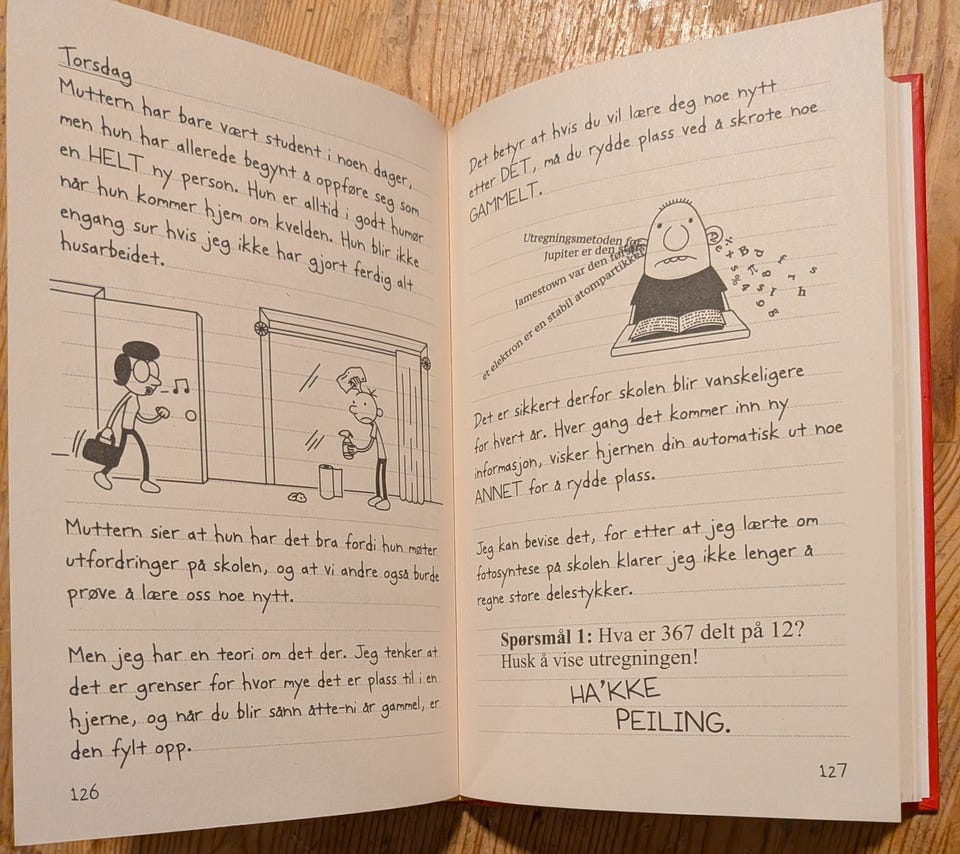 Torsdag
Muttern har bare vært student i noen dager,
men hun har allerede begynt å oppføre seg som
en HELT ny person. Hun er alltid i godt humør
når hun kommer hjem om kvelden. Hun blir ikke
engang sur hvis jeg ikke har gjort ferdig alt
husarbeidet.
Muttern sier at hun har det bra fordi hun møter
utfordringer på skolen, og at vi andre også burde
prøve å lære oss noe nytt.
Men jeg har en teori om det der. Jeg tenker at
det er grenser for hvor mye det er plass til i en
hjerne, og når du blir sånn åtte-ni år gammel, er
den fylt opp.
126
Det betyr at hvis du vil lære deg noe nytt
etter DET, må du rydde plass ved å skrote noe
GAMMELT.
Utregningsmetoden for
Jupiter er den
Jamestown var den første
et elektron er en stabil atompartikkel
Det er sikkert derfor skolen blir vanskeligere
for hvert år. Hver gang det kommer inn ny
informasjon, visker hjernen din automatisk ut noe
ANNET for å rydde plass.
Jeg kan bevise det, for etter at jeg lærte om
fotosyntese på skolen klarer jeg ikke lenger å
regne store delestykker.
Spørsmål 1: Hva er 367 delt på 12?
Husk å vise utregningen!
HA'KKE
PEILING.
127